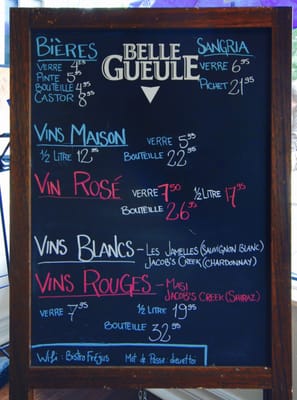 BIÈRES
VERRE 4.95
PINTE 5.95
BOUTEILLE 4.95
CASTOR 8.95
BELLE
GUEULE
SANGRIA
VERRE 6.95
PICHET 21.95
VINS MAISON VERRE 5.95
½ LITRE 12.95 BOUTEILLE 22.95
VIN ROSÉ VERRE 7.50 ½ LITRE 17.95
BOUTEILLE 26.95
VINS BLANCS - LES JAMELLES (SAUVIGNON BLANC)
JACOB'S CREEK (CHARDONNAY)
VINS ROUGES - MASI
JACOB'S CREEK (SHIRAZ)
VERRE 7.95 ½ LITRE 19.95
BOUTEILLE 32.95
Wifi: Bistro Fréjus Mot de Passe: